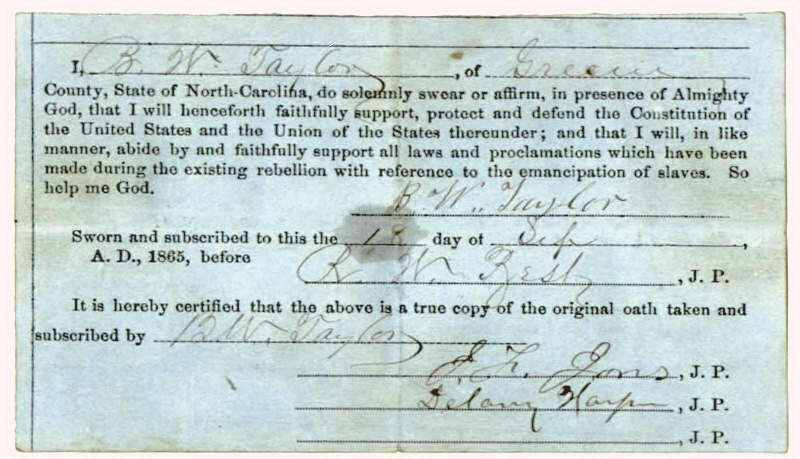 I, B. W. Taylor, of Greene
County, State of North-Carolina, do solemnly swear or affirm, in presence of Almighty
God, that I will henceforth faithfully support, protect and defend the Constitution of
the United States and the Union of the States thereunder; and that I will, in like
manner, abide by and faithfully support all laws and proclamations which have been
made during the existing rebellion with reference to the emancipation of slaves. So
help me God.
B. W. Taylor
Sworn and subscribed to this the 18 day of Sep,
A. D., 1865, before
W. Best, J. P.
It is hereby certified that the above is a true copy of the original oath taken and
subscribed by B. W. Taylor
J. Jons, J. P.
Harper, J. P.
, J. P.